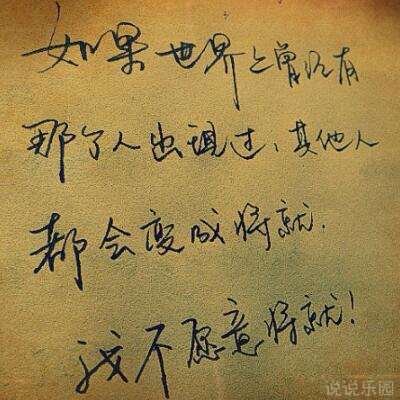 如果世界上曾经有
那个人出现过、其他人
都会变成将就.
我不愿意将就!
说说乐园